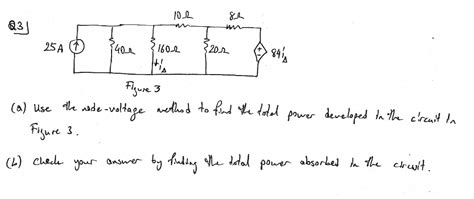 Q3]
10Ω 8Ω
25A 40Ω 160Ω 20Ω 84i△
i△
Figure 3
(a) Use the node-voltage method to find the total power developed in the circuit in
Figure 3.
(b) Check your answer by finding the total power absorbed in the circuit.